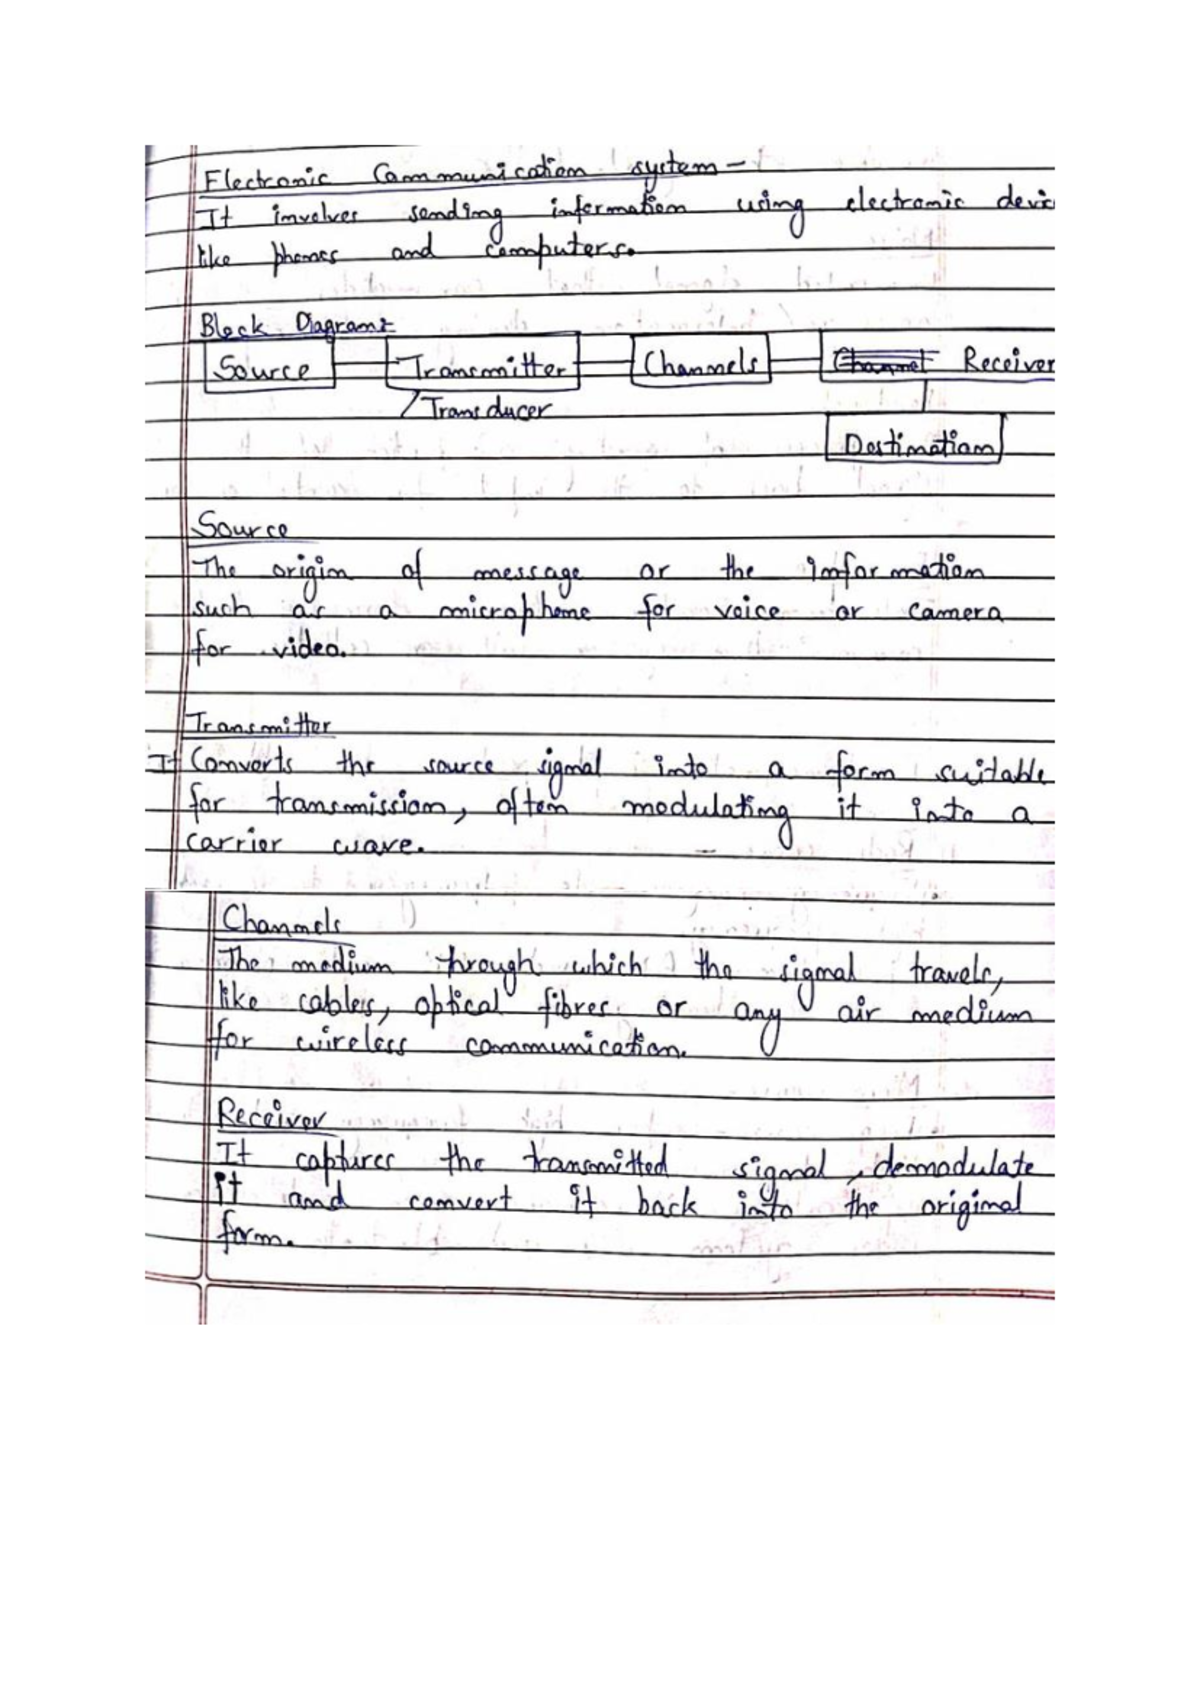 Electronic Communication system -
It involves sending information using electronic devic
like phones and computers.
Block Diagram:
Source Transmitter Channels Channel Receiver
/Transducer
Destination
Source
The origin of message or the information
such as a microphone for voice or camera
for video.
Transmitter
It Converts the source signal into a form suitable
for transmission, often modulating it into a
carrier wave.
Channels
The medium through which the signal travels,
like cables, optical fibres or any air medium
for wireless communication.
Receiver
It captures the transmitted signal, demodulate
it and convert it back into the original
form.